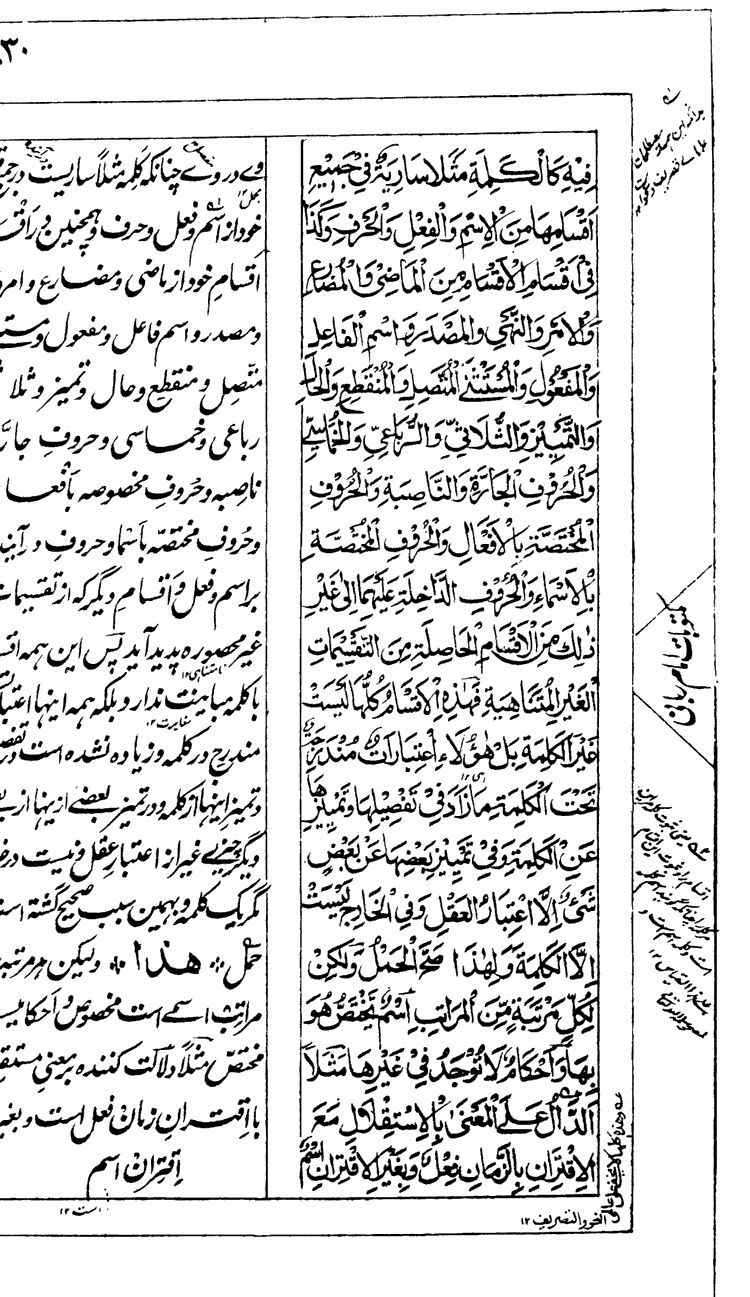 ۳۰
فِيْهِ كَالْكَلِمَةِ مَثَلًا سَارِيَةٌ فِيْ جَمِيْعِ
اَقْسَامِهَا مِنَ الْاِسْمِ وَالْفِعْلِ وَالْحَرْفِ وَكَذَا
فِيْ اَقْسَامِ الْاَقْسَامِ مِنَ الْمَاضِيْ وَالْمُضَارِعِ
وَالْاَمْرِ وَالنَّهْيِ وَالْمَصْدَرِ وَاسْمِ الْفَاعِلِ
وَالْمَفْعُوْلِ وَالْمُسْتَثْنٰى الْمُتَّصِلِ وَالْمُنْقَطِعِ وَالْحَالِ
وَالتَّمْيِيْزِ وَالثُّلَاثِيِّ وَالرُّبَاعِيِّ وَالْخُمَاسِيِّ
وَالْحُرُوْفِ الْجَارَّةِ وَالنَّاصِبَةِ وَالْحُرُوْفِ
الْمُخْتَصَّةِ بِالْاَفْعَالِ وَالْحُرُوْفِ الْمُخْتَصَّةِ
بِالْاَسْمَاءِ وَالْحُرُوْفِ الدَّاخِلَةِ عَلَيْهِمَا اِلٰى غَيْرِ
ذٰلِكَ مِنَ الْاَقْسَامِ الْحَاصِلَةِ مِنَ التَّقْسِيْمَاتِ
الْغَيْرِ الْمُتَنَاهِيَةِ فَهٰذِهِ الْاَقْسَامُ كُلُّهَا لَيْسَتْ
غَيْرَ الْكَلِمَةِ بَلْ هٰؤُلَاءِ اعْتِبَارَاتٌ مُنْدَرِجَةٌ
تَحْتَ الْكَلِمَةِ مَازَادَ فِيْ تَفْصِيْلِهَا وَتَمْيِيْزِهَا
عَنِ الْكَلِمَةِ وَفِيْ تَمْيِيْزِ بَعْضِهَا عَنْ بَعْضٍ
شَيْءٌ اِلَّا اعْتِبَارُ الْعَقْلِ وَفِي الْخَارِجِ لَيْسَتْ
اِلَّا الْكَلِمَةَ وَلِهٰذَا صَحَّ الْحَمْلُ وَلٰكِنْ
لِكُلِّ مَرْتَبَةٍ مِّنَ الْمَرَاتِبِ اسْمٌ يَخْتَصُّ هُوَ
بِهَا وَاَحْكَامٌ لَا تُوْجَدُ فِيْ غَيْرِهَا مَثَلًا
اَلدَّالُّ عَلَى الْمَعْنٰى بِالْاِسْتِقْلَالِ مَعَ
الْاِقْتِرَانِ بِالزَّمَانِ فِعْلٌ وَبِغَيْرِ الْاِقْتِرَانِ اسْمٌ
وے در وے چنانکہ کلِمہ مثلاً ساریست در جمیع
خود از اسم وفعل وحرف وہمچنین در اَقْس
اَقسامِ خود از ماضی ومضارع وامر
ومصدر واسم فاعل ومفعول ومست
متّصل ومنقطع وحال وتمیز وثلا
رباعی وخماسی وحروفِ جارّ
ناصبہ وحُروفِ مخصوصہ بَافعا
وحُروفِ مختصّہ بَاسْما وحروفِ در آین
براسم وفعل واَقسامِ دیگر کہ از تقسیمات
غیر محصورہ پدید آید پس این ہمہ اقس
باکلمہ مباینت ندارد بلکہ ہمہ اینہا اعتبا
مندرج در کلمہ وزیادہ نشدہ است در تفص
وتمیز اینہا از کلمہ ودر تمیز بعضے از ینہا از بع
دیگر چیزے غیر از اعتبارِ عقل ونیست در
مگر یک کلمہ وبہمین سبب صحیح گشتہ است
حمل ھذا ولیکن ہر مرتبہ
مراتب اسمے است مخصوص واَحکامیس
مختصّ مثلاً دلالت کنندہ بر معنیِ مستق
بااِقترانِ زمان فعل است وبغیر
اِقتران اسم
است ۱۲
النحو والتصریف ۱۲
مکتوبات امام ربانی